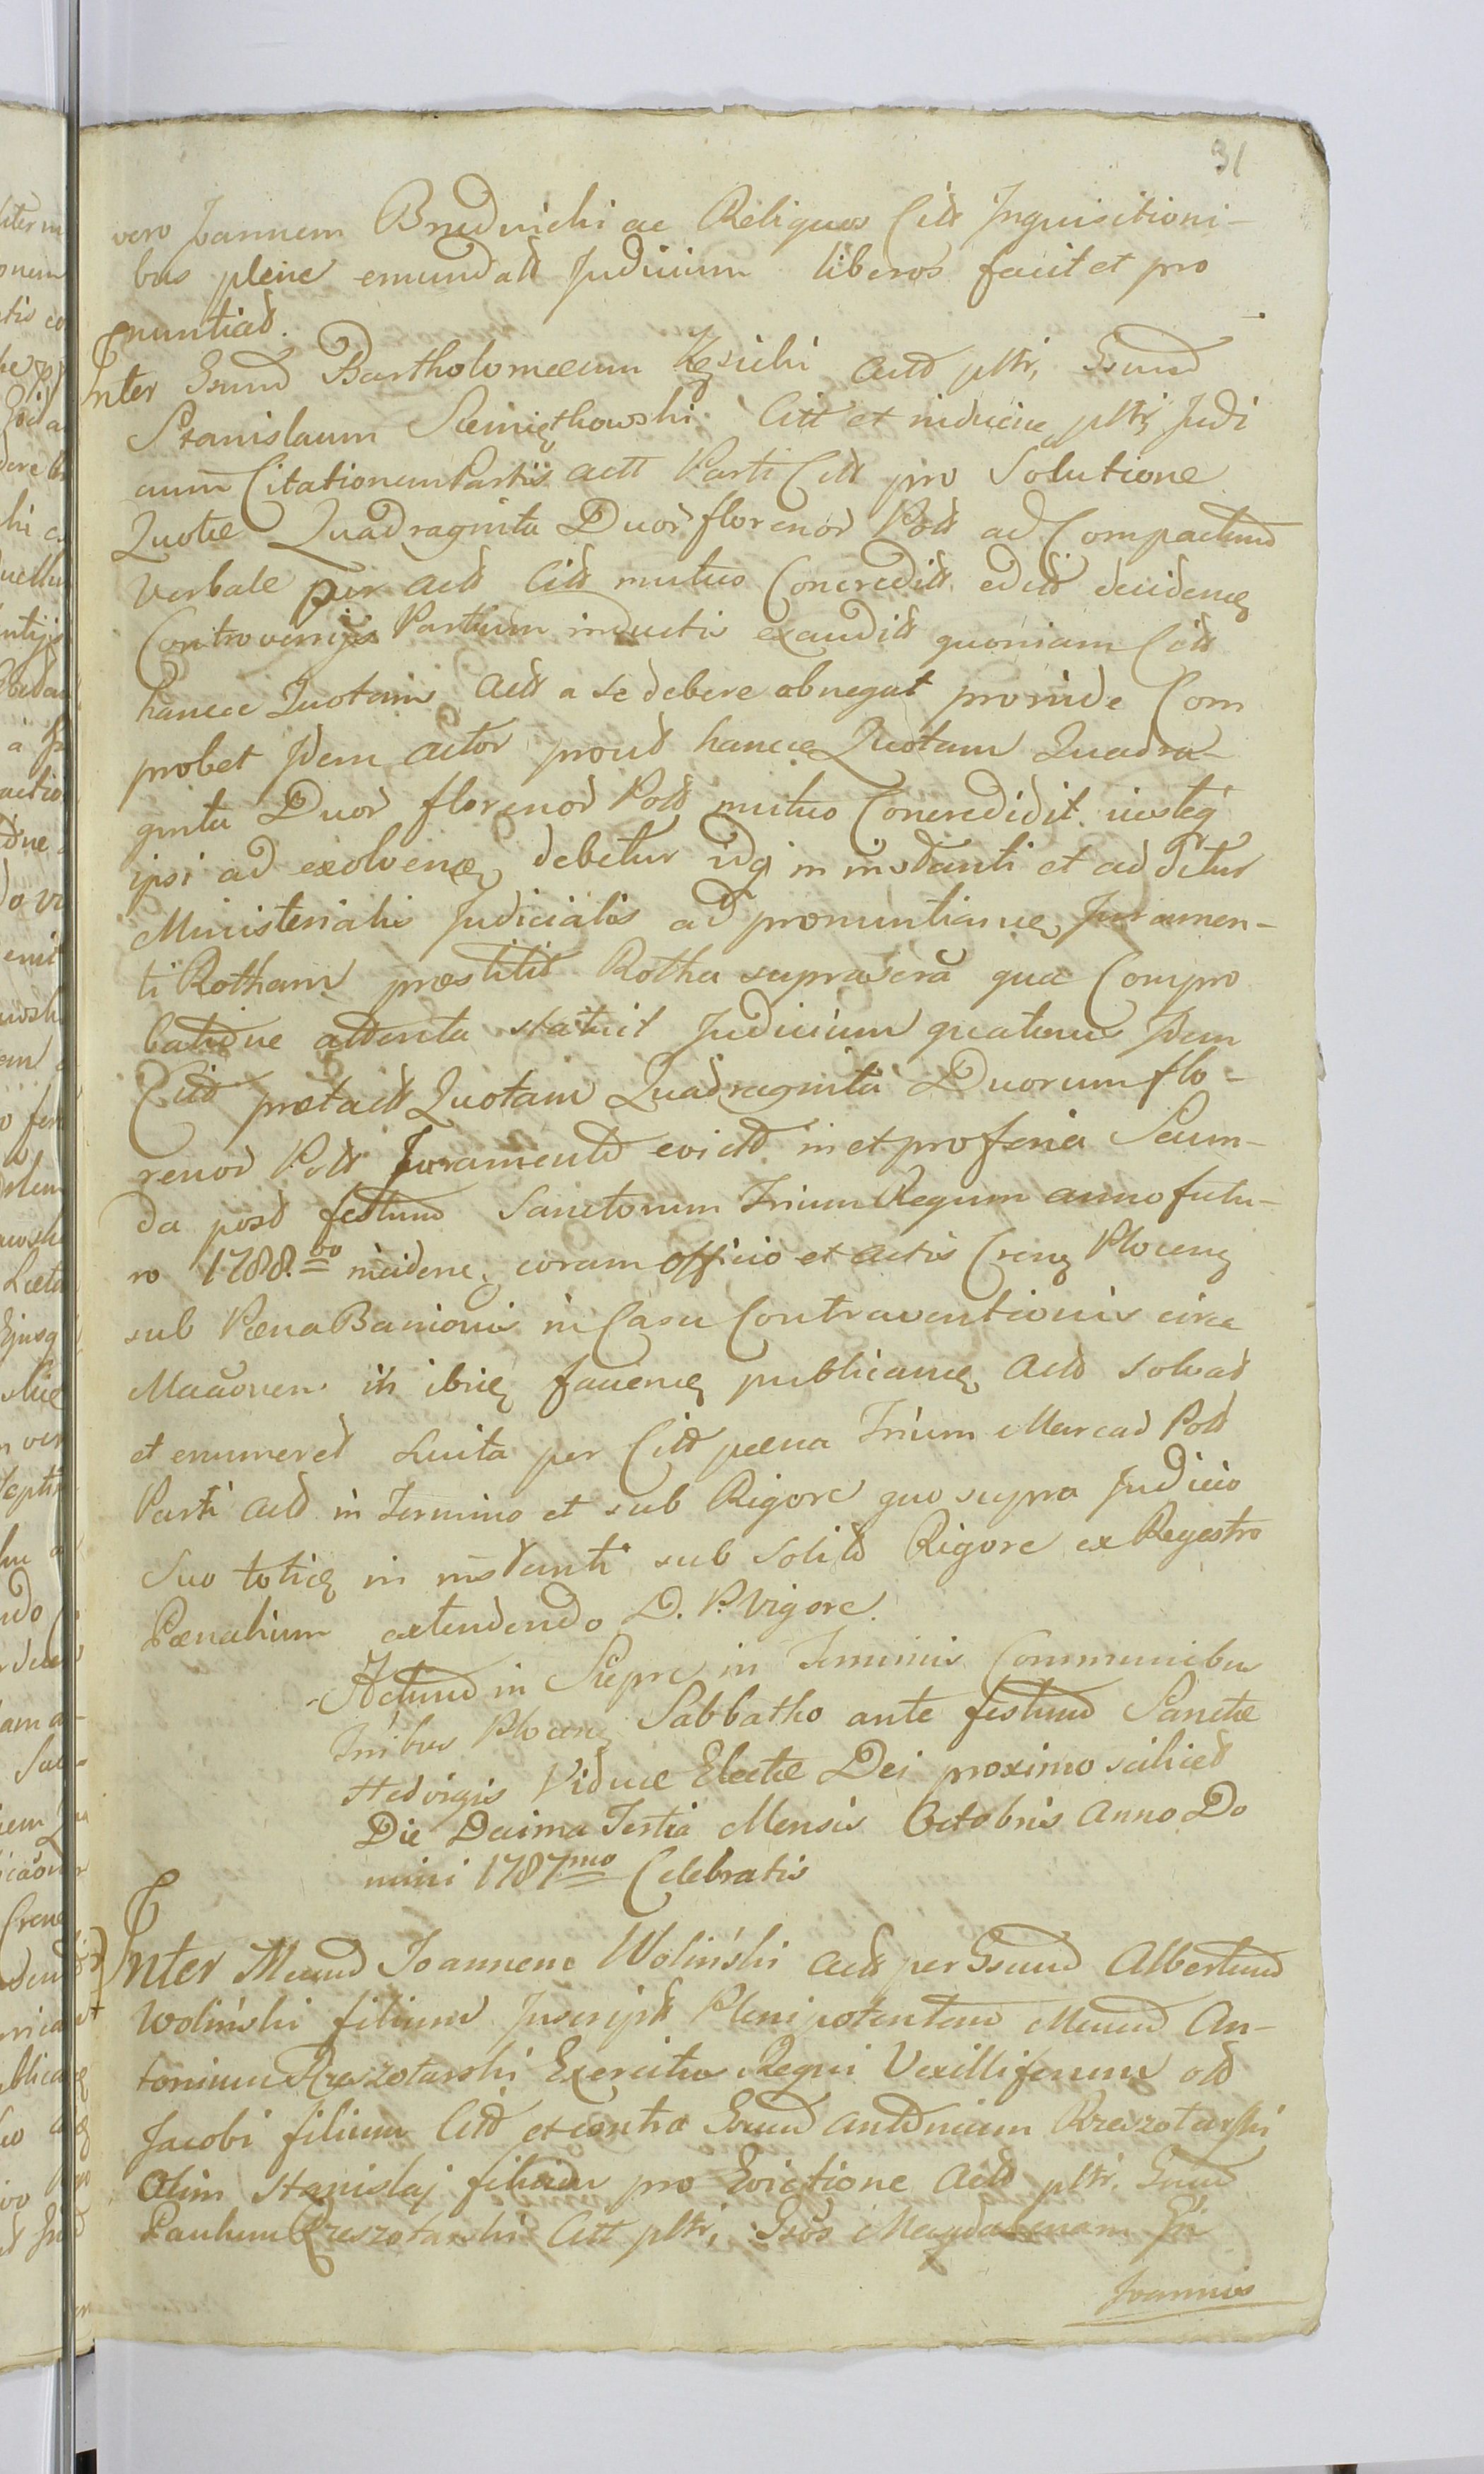 31
vero Joannem Brudnicki ac Reliquos Citt Inquisitioni-
bus plene emundatt Judicium liberos facit et pro
nuntiat.
Inter Gsum Bartholomeum Kęsicki Actt pltr, Gsum
Stanislaum Siemiątkowski Citt et inducię pltr, Judi
cium Citationem Partis Actt Parti Citt pro Solutione
Quotæ Quadraginta Duor florenor Poll ad Compactum
Verbale per Actt Citt mutuo Concreditt edit decidenę
Controversijs Partium inductis exauditt quoniam Citt
hancce Quotam Actt a se debere abnegat proinde Com
probet Idem Actor prout hancce Quotam Quadra-
ginta Duor florenor Poll mutuo Concredidit
ipsi ad exolvenę debetur idq in instanti et additur
Ministerialis Judicialis ad pronuntianę Juramen-
ti Rotham præstitit Rotha suprascra qua Compro
batione attenta statuit Judicium quatenus Idem
Citt prætactt Quotam Quadraginta Duorum flo-
renor Poll Juramento evictt in et pro feria Secun-
da post festum Sanctorum Trium Regum anno futu-
ro 1788.vo incidenę coram officio et Actis Crenę Plocenę
sub Pœna Banionis in Casu Contraventionis circa
in ibidę facienę publicanę Actt solvat
et enumeret Luita per Citt pœna Trium Marcar Poll
Parti Actt in Termino et sub Rigore quo supra Judicio
Suo toticę in instanti sub solitt Rigore ex Regestro
Pœnalium extendendo D. P. Vigore.
Actum in Sieprc in Terminis Communibus
Tribus Plocenę Sabbatho ante festum Sanctæ
Hedvigis Viduæ Electæ Dei proximo scilicet
Die Decima Tertia Mensis Octobris Anno Do
mini 1787mo Celebratis
Inter Mcum Joannem Woliński Actt per Gsum Albertum
Woliński filium Inscript Plenipotentem Mcum An-
tonium Rzeszotarski Exercitus Regni Vexilliferum olt
Jacobi filium Citt et contra Gsum Antonium Rzeszotarski
Olim Stanislaj filium pro Evictione Actt pltr, Gsum
Paulum Rzeszotarski Citt pltr, Gsos Magdalenam
Joannis